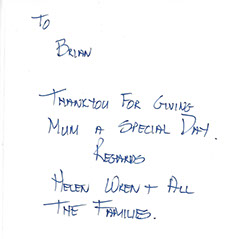 To
Brian
Thankyou For Giving
Mum a Special Day.
Regards
Helen Wren + All
The Families.